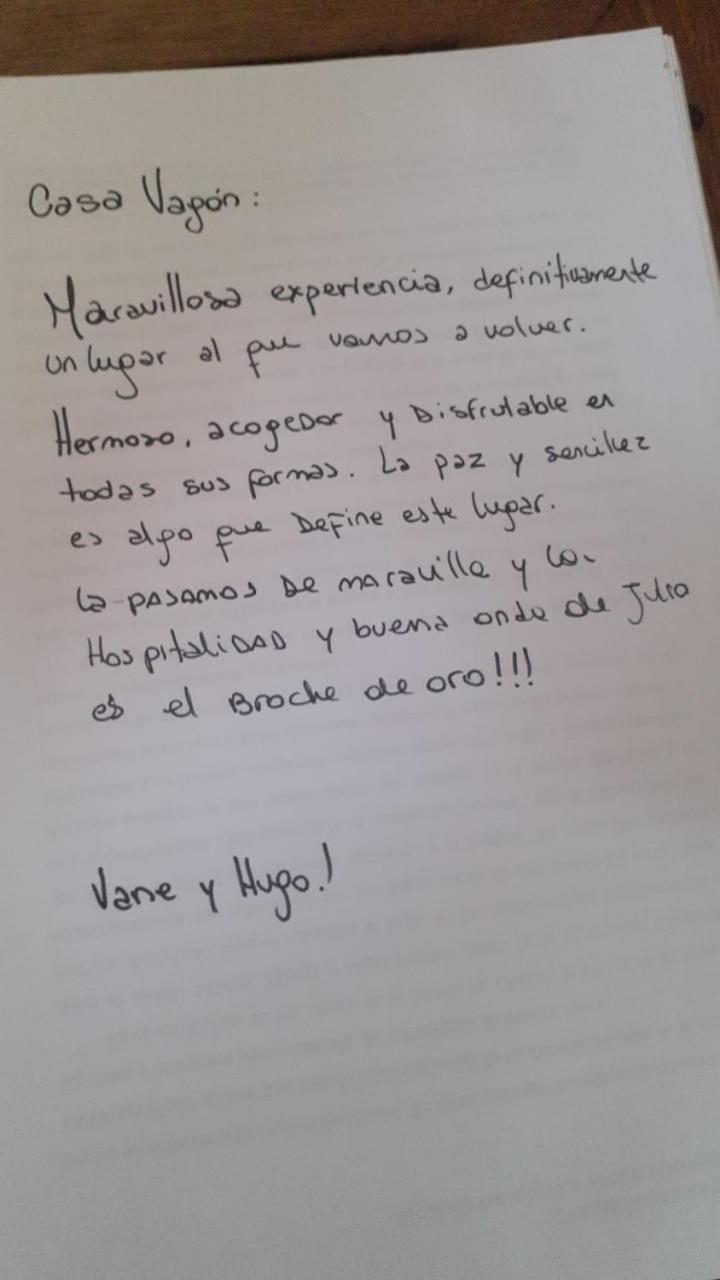 Casa Vagón:
Maravillosa experiencia, definitivamente
un lugar al que vamos a volver.
Hermoso, acogedor y Disfrutable en
todas sus formas. La paz y sencillez
es algo que Define este lugar.
La pasamos De maravilla y la
HospitaliDAD y buena onda de Julio
es el Broche de oro!!!
Vane y Hugo!